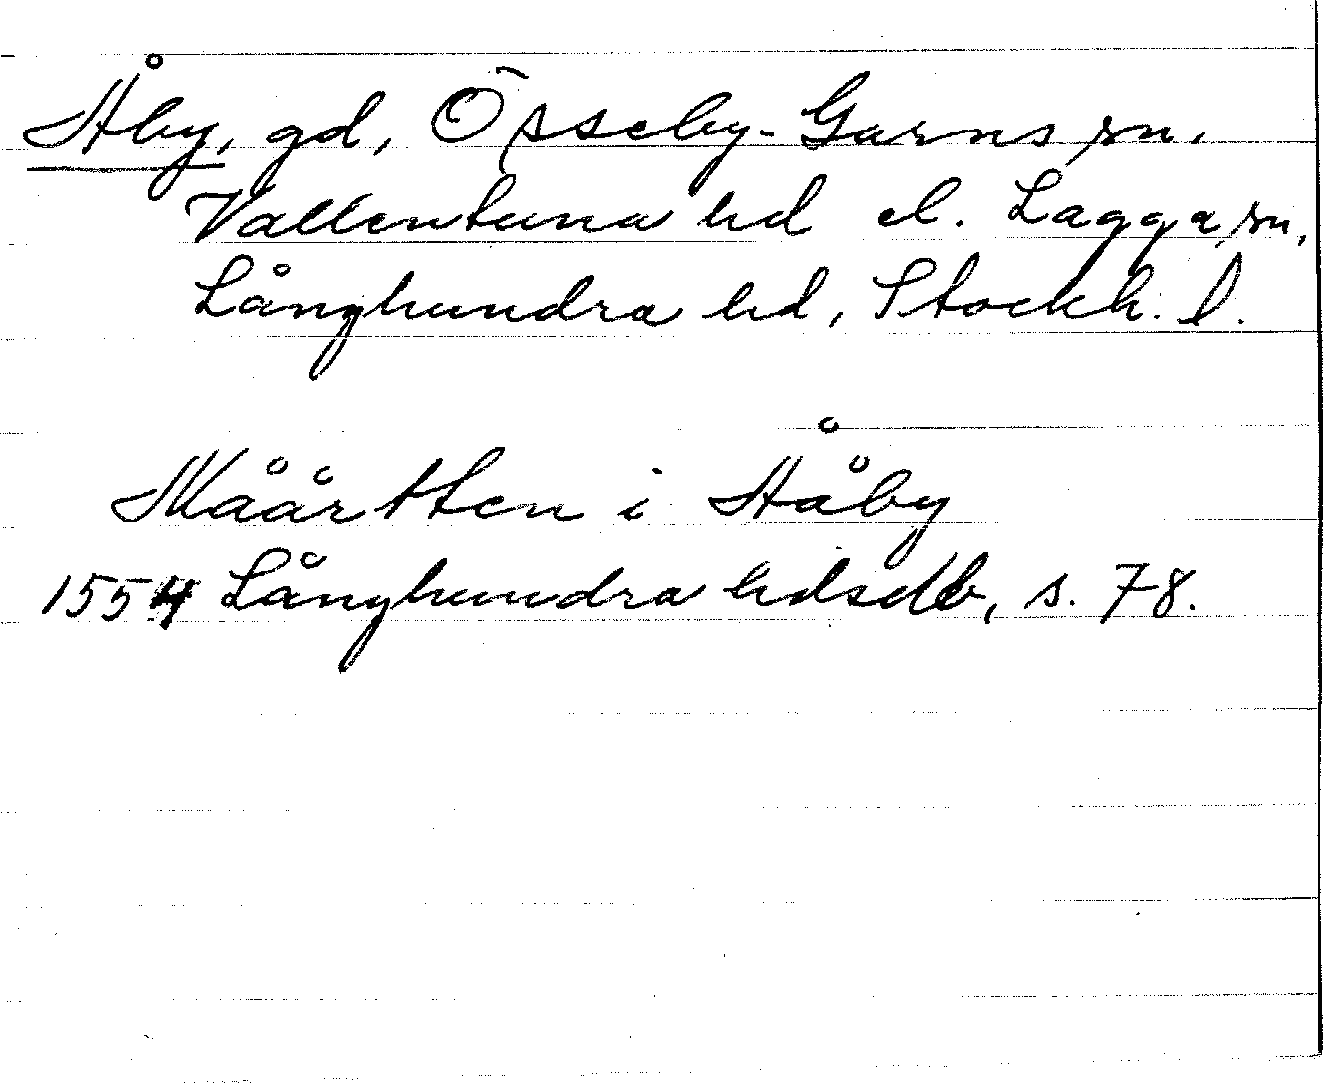 Åby, gd, Össeby-Garns sn.
Vallentuna hd el. Lagga sn,
Långhundra hd, Stockh. l.
Måårtten i Ååby
1554 Långhundra hdsdb, s. 78.